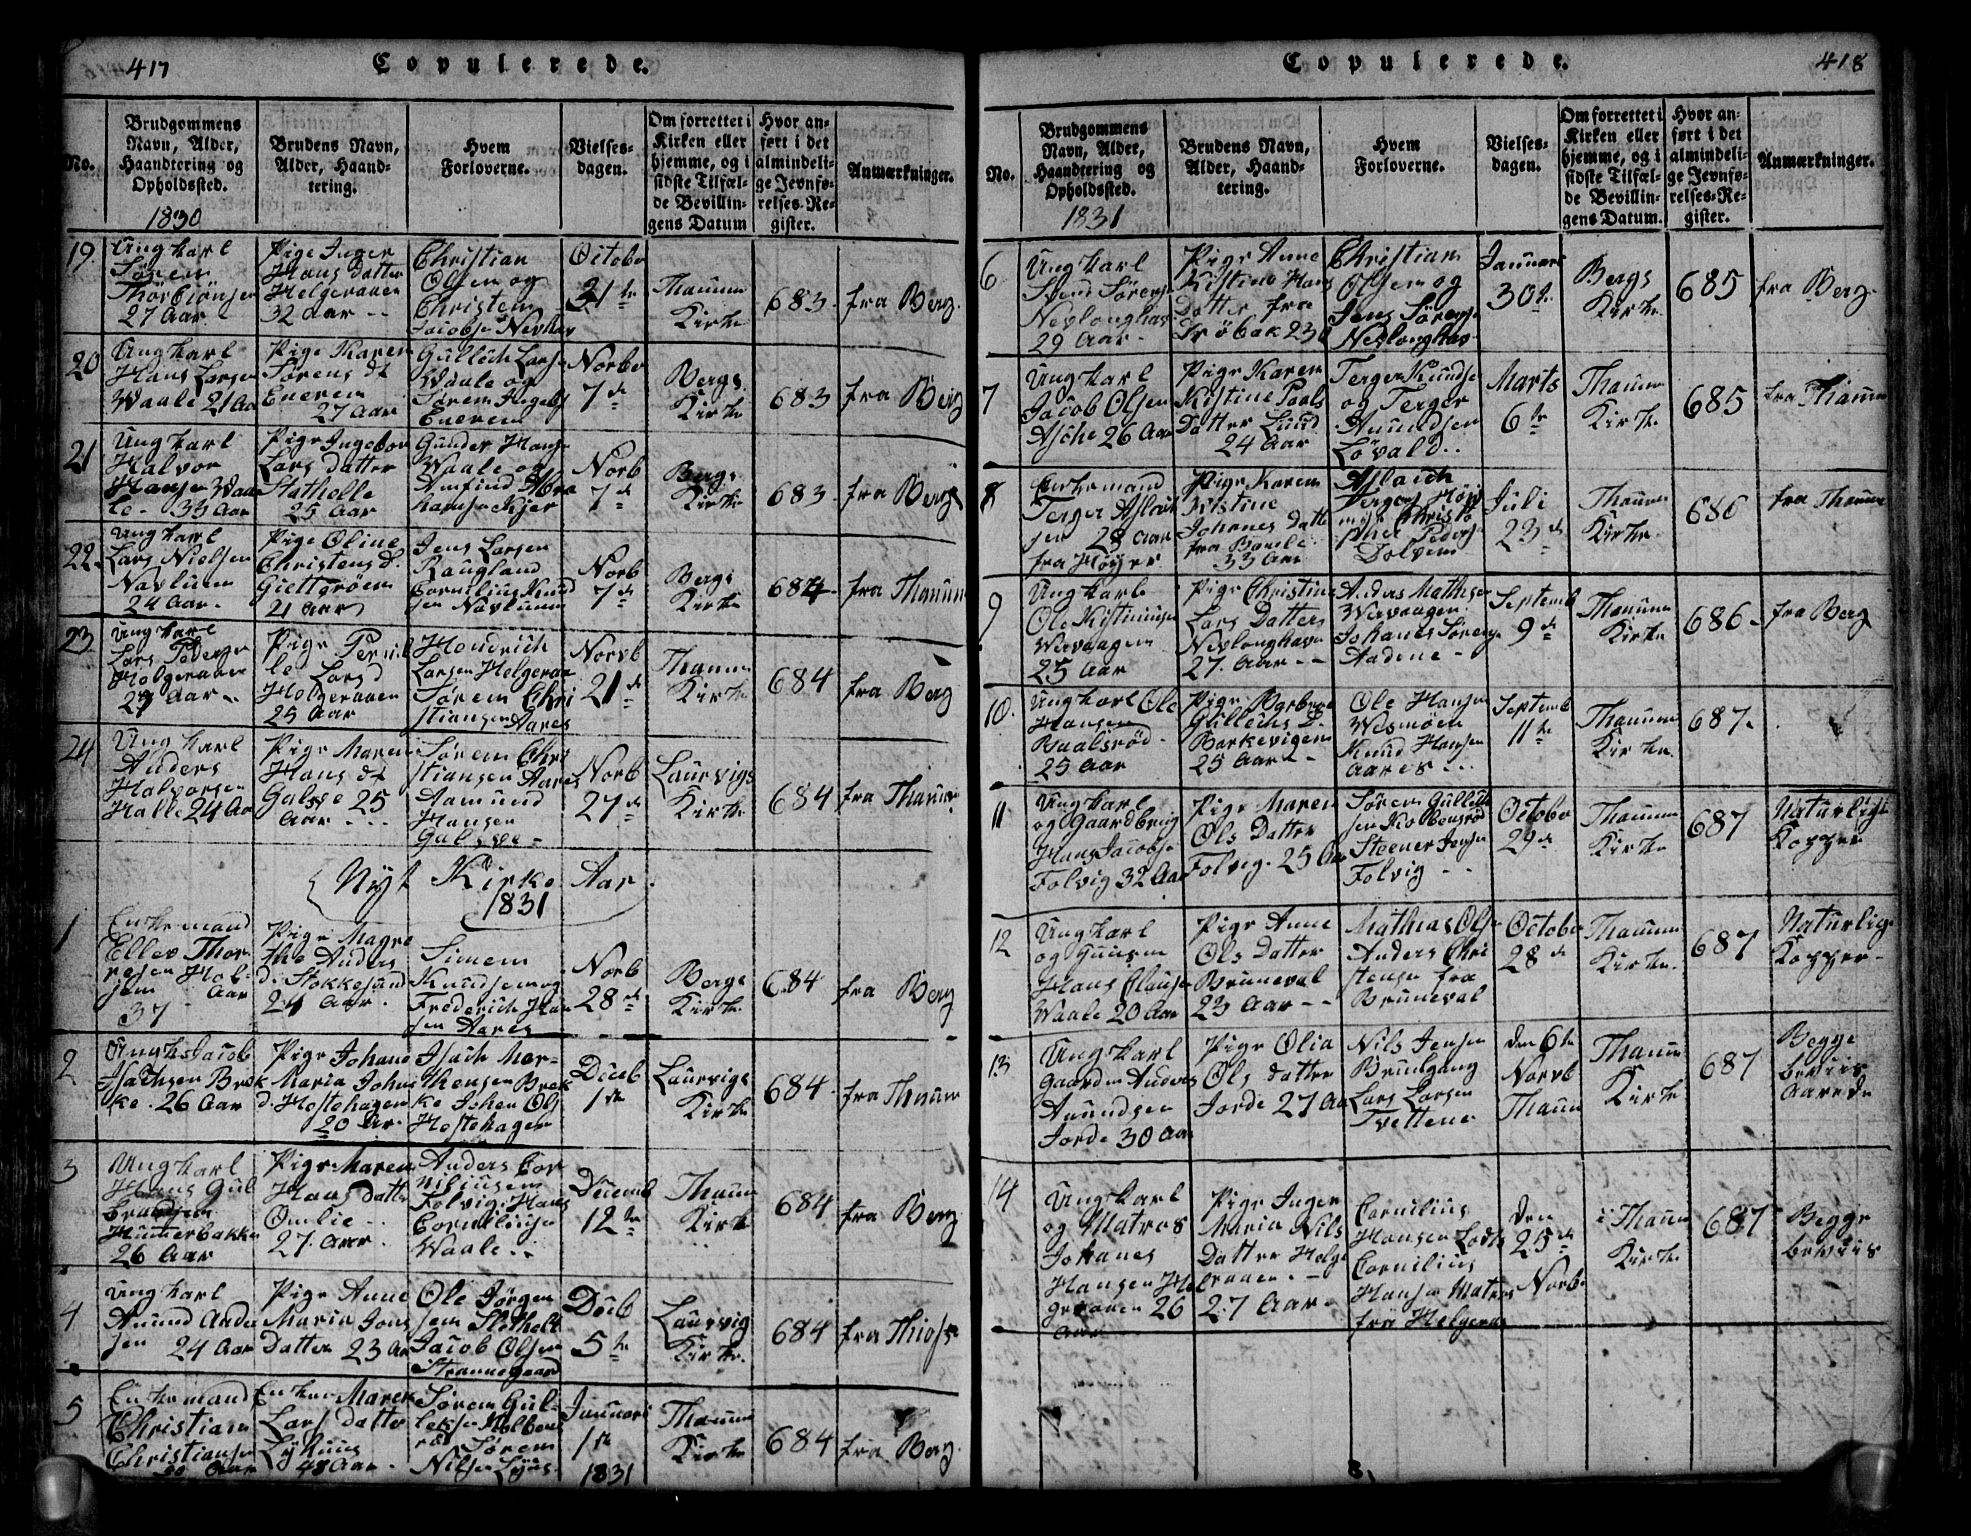 417
Copulerede.
No.
Brudgommens
Navn, Alder,
Haandtering og
Opholdssted.
1830
Brudens Navn,
Alder, Haand-
tering.
Hvem
Forloverne.
Vielses-
dagen.
Om forrettet i
Kirken eller
hjemme, og i
sidste Tilfæl-
de Bevillin-
gens Datum
Hvor an-
ført i det
almindeli-
ge Jevnfø-
relses-Re-
gister.
Anmærkninger.
19
Ungkarl
Sören
Thörbiönsen
27 Aar
Pige Inger
Hans datter
Helgeraaen
32 aar
Christian
Olsen og
Christen
Jacobse Nevlhav
October
31te
Thaum
Kirke
683
fra Berg
20
Ungkarl
Hans Larsen
Waale 21 Aa
Pige Karen
Sörens dt
Everen
27 aar
Gullich Larse
Waale og
Sörem
Everem
Norbr
7de
Bergs
Kirke
683
fra Berg
21
Ungkarl
Halvor
Hansen Waa
le 33 Aar
Pige Ingebor
Lars datter
Stathelle
25 Aar
Gunder Hans
Waale og
Amfind Abra
hamsen Kjær
Norb
7de
Bergs
Kirke
683
fra Berg
22
Ungkarl
Lars Nielsen
Navluen
24 Aar
Pige Oline
Christens d.
Giettgröem
21 aar
Jens Larsen
Raugland
Cornelius Knud
sen Navluum
Norb
7de
Bergs
Kirke
684
fra Thaum
23
Ungkarl
Lars Pederse
Helgeraaen
29 Aar
Pige Pernil
le Lars d
Helgeraaen
25 Aar
Hendrich
Larsen Helgeraa
Sörem Chri
stiansen Aares
Norvb
21de
Thaum
Kirke
684
fra Berg
24
Ungkarl
Anders
Halvorsen
Halle 24 Aar
Pige Maren
Hans dt
Galsse 25
Aar
Sörem Chri
stiansen Aares
Aamund
Hansen
Galsse
Norb
27de
Laurvigs
Kirke
684
fra Thaum
Nyt Kirke Aar
1831
1
Enkemand
Ellev Thor
resen Hol
sem Aar
37
Pige Magre
the Anders
d. Stokkesund
24 Aar
Simem
Knudsen og
Frederich Han
sen Aares
Norb
28de
Bergs
Kirke
684
fra Berg
2
Ungk Jacob
Isachsen Brek
ke. 26 Aar
Pige Johane
Maria Johns
d. Hostehagen
20 Aar
Isach Mar-
thensen Brek
ke Johen Ols
Hostehagen
Deceb
1ste
Laurvigs
Kirke
684
fra Thaum
3
Ungkarl
Hans Gul
brandsen
Hunterbakke
26 Aar
Pige Maren
Hans datte
Omlie
27 Aar
Anders Cor
niliusem
Folvig. Hans
Corneliuse
Waale
Decemb
12te
Thaum
Kirke
684
fra Berg
4
Ungkarl
Anund Ander
sen 24 Aar
Pige Anne
Maria Jons
Datter 23 Aa
Ole Jörgen
sem
Jacob Olsen
Deceb
5te
Laurvig
Kirke
684
fra
5
Enkemand
Christian
Christiansen
Enken Marek
Lars datter
48 Aar
Sörem Gul-
leksen Kolbens
röd Sörem
Nilsen
Januari
1ste
1831
Thaum
Kirke
684
fra Berg
418
Copulerede.
No.
Brudgommens
Navn, Alder,
Haandtering og
Opholdssted.
1831
Brudens Navn,
Alder, Haand-
tering.
Hvem
Forloverne.
Vielses-
dagen.
Om forrettet i
Kirken eller
hjemme, og i
sidste Tilfæl-
de Bevillin-
gens Datum.
Hvor an-
ført i det
almindeli-
ge Jevnfø-
relses-Re-
gister.
Anmærkninger.
6
Ungkarl
Svend Sörens
Nevlonghav
29 Aar
Pige Anne
Kistine Hans
Datter fra
Fröbak 23
Christian
Olsen og
Jens Sörens
Nevlonghav
Januari
30te
Bergs
Kirke
685
fra Berg
7
Ungkarl
Jacob Olsen
Asche 26 Aar
Pige Karen
Kistine Pouls
Datter Lund
24 Aar
Terger Knudse
og Terger
Anundsen
Lövald
Marts
6te
Thaum
Kirke
685
fra Thaum
8
Enkemand
Terger Aslak
sen 28 aar
fra Höyer
Pige Karen
Kistine
Johanes datt
fra Bamle
33 Aar
Aslach
Tergers Höy
og Christo
pher Peders
Dolven
Juli
23de
Thaum
Kirke
686
fra Thaum
9
Ungkarl
Ole Kistiansen
Wevaagen
25 Aar
Pige Christin
Lars Datter
Nevlonghavn
27 Aar
Anders Mathise
Wevaagen
Johanes Sörense
Aadene
Septemb
9de
Thaum
Kirke
686
fra Berg
10
Ungkarl Ole
Hansen
Baalsröd
25 Aar
Pige Barbroe
Gullechs D.
Barkevigen
25 Aar
Ole Hanse
Wismöen
Knud Hansen
Aares
Septemb
11te
Thaum
Kirke
687
11
Ungkarl
og Gaardbrug
Hans Jacobse
Folvig 32 Aar
Pige Maren
Ols Datter
Folvig. 25 Aa
Sörem Gullich
sen Kolbensröd
Steener Jense
Folvig
Octobe
29de
Thaum
Kirke
687
Naturlige
Kopper
12
Ungkarl
og
Hans Clause
Waale 20 Aar
Pige Anne
Ols Datter
Bruneval
23 Aar
Mathias Olse
Anders Chri
stense fra
Bruneval
October
28de
Thaum
Kirke
687
Naturlige
Kopper
13
Ungkarl
Gaardm Anders
Anundsen
Jorde 30 Aar
Pige Olia
Ols datter
Jorde 27 Aar
Nils Jensen
Brunlgang
Lars Larsen
Tvettene
den 6te
Norvb
Thaum
Thaum
Kirke
687
Begge
beviis
Aarede
14
Ungkarl
og Matros
Johanes
Hansen Hel
geraaen 26
Aar
Pige Inger
Maria Nils
Datter Helge
raaen
27 Aar
Cornilius
Hansen Lods
Cornilius
Hansen Matros
fra Helgeraa
den
25de
Norb
i Thaum
Kirke
687
Begge
beviis